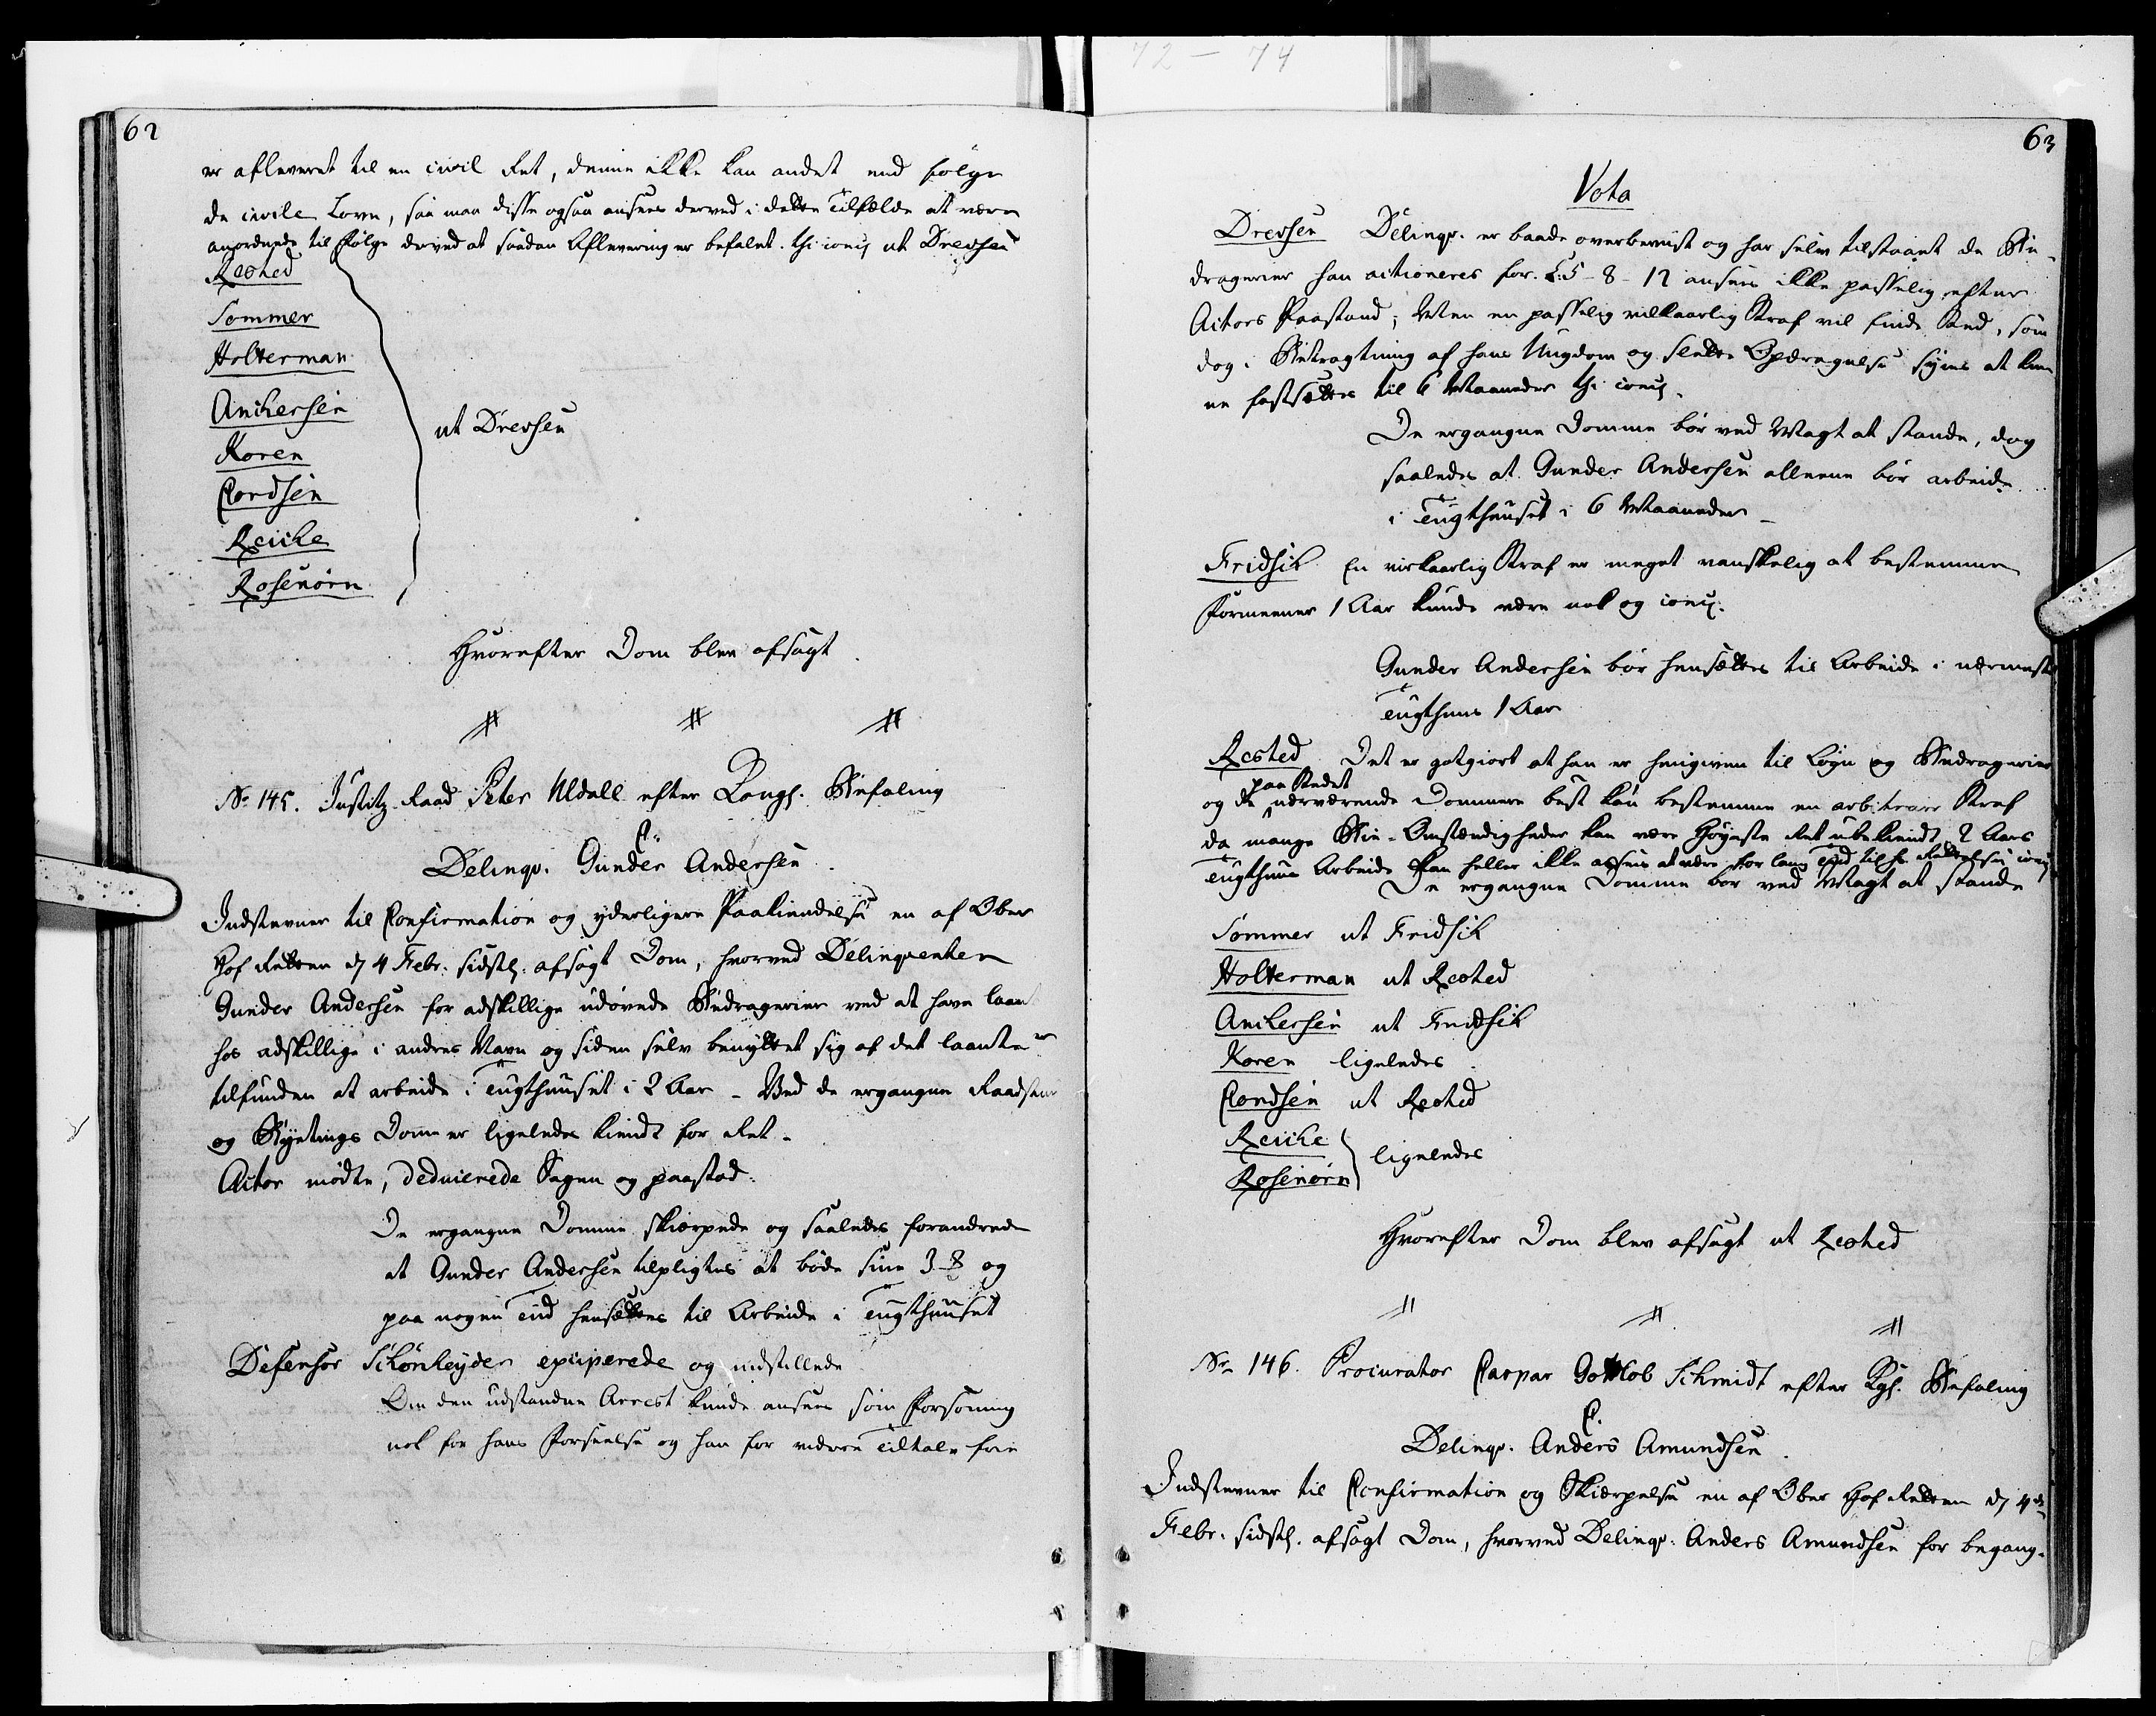 72 – 74
62
er afleveret til en civil Ret, denne ikke kan andet end følge
de civile Love, saa maa disse ogsaa ansees derved i dette Tilfælde at være
anordnede til Følge derved at saadan Aflevering er befalet. thi conc: ut Drevsen
Rested
Sommer
Holterman
Anchersen
Koren
ut Drevsen
Cordsen
Reiche
Rosenørn
Hvorefter Dom blev afsagt
No 145. Justitz Raad Peter Uldall efter Kongl. Befaling
C.
Delinqv. Gunder Andersen
Indstevner til Confirmation og yderligere Paakiendelse en af Ober
Hof Retten d 4 Febr. sidstl. afsagt Dom, hvorved Delinqventen
Gunder Andersen for adskillige udøvede Bedragerier ved at have laant
hos adskillige i andres Navn og siden selv benyttet sig af det laante er
tilfunden at arbeide i Tugthuuset i 2 Aar – Ved de ergangne Raadstue
og Byetings Domme er ligeledes kiendt for Ret.
Actor mødte, deducerede Sagen og paastod.
De ergangne Domme skiærpede og saaledes forandrede
at Gunder Andersen tilpligtes at bøde sine 3 og
paa nogen Tiid hensættes til Arbeide i Tugthuuset
Defensor Schönheyder exciperede og indstillede
Om den udstandne Arrest kunde ansees som Forsoning
nok for hans Forseelse og han for videre Tiltale frie
63
Vota
Drevsen Delinqv. er baade overbeviist og har selv tilstaaet de Be-
dragerier han actioneres for. L: 5 - 8 - 12 ansees ikke passelig efter
Actors Paastand; Men en passelig vilkaarlig Straf vil finde Sted, som
dog i Betragtning af hans Ungdom og slette Opdragelse synes at kun-
ne fastsættes til 6 Maaneder thi conc:
De ergangne Domme bør ved Magt at stande, dog
saaledes at Gunder Andersen alleene bør arbeide
i Tugthuuset i 6 Maaneder
Fridsch En vilkaarlig Straf er meget vanskelig at bestemme
Formeener 1 Aar kunde være nok og conc:
Gunder Andersen bør hensættes til Arbeide i nærmeste
Tugthuus 1 Aar
Rested Det er gotgiort at han er hengiven til Løgn og Bedragerier
paa Stedet
og de nærværende Dommere best kan bestemme en arbitrair Straf
da mange Bie-Omstændigheder kan være Høyeste Ret ubekiendt. 2 Aars
Tugthuus Arbeide kan heller ikke ansees at være for lang Tid til hs Rettelse conc:
De ergangne Domme bør ved Magt at stande
Sommer ut Fridsch
Holterman ut Rested
Anchersen ut Fridsch
Koren ligeledes
Cordsen ut Rested
Reiche
ligeledes
Rosenørn
Hvorefter Dom blev afsagt ut Rested
No 146. Procurator Caspar Gottlob Schmidt efter Kgl. Befaling
C.
Delinqv. Anders Amundsen
Indstevner til Confirmation og Skiærpelse en af Ober Hof Retten d 4de
Febr. sidstl. afsagt Dom, hvorved Delinqv. Anders Amundsen for begang-